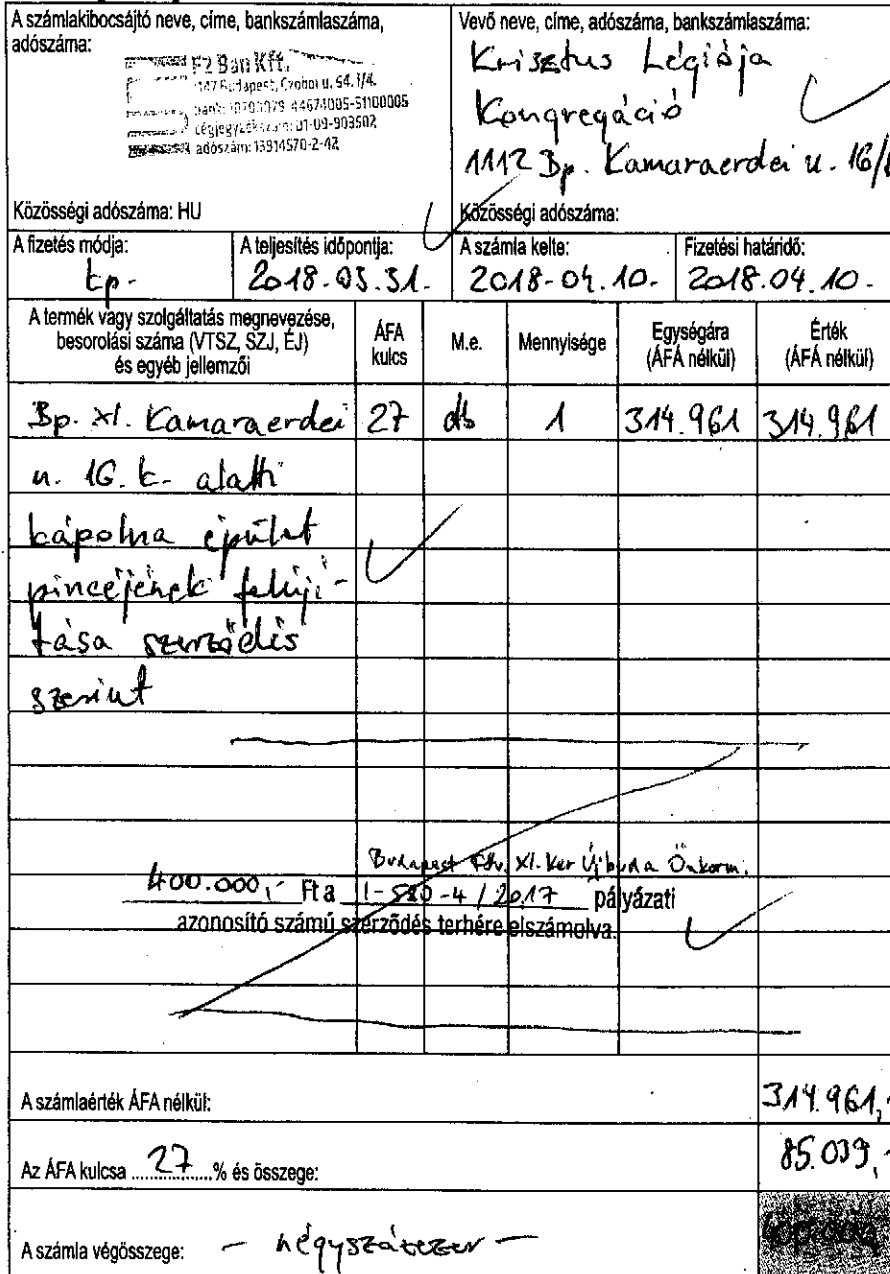 A számlakibocsájtó neve, címe, bankszámlaszáma,
adószáma:
F2 Bau Kft.
Budapest, Czobor u. 54. 1/4.
44674005-5100005
cégjegyzékszám: 01-09-903502
adószám: 13914570-2-42
Közösségi adószáma: HU
Vevő neve, címe, adószáma, bankszámlaszáma:
Krisztus Légiója
Kongregáció
1112 Bp. Kamaraerdei u. 16/
Közösségi adószáma:
A fizetés módja:
A teljesítés időpontja:
A számla kelte:
Fizetési határidő:
kp.
2018.03.31.
2018-04.10.
2018.04.10.
A termék vagy szolgáltatás megnevezése,
besorolási száma (VTSZ, SZJ, ÉJ)
és egyéb jellemzői
ÁFA
kulcs
M.e.
Mennyisége
Egységára
(ÁFA nélkül)
Érték
(ÁFA nélkül)
Bp. XI. Kamaraerdei 27 db 1 314.961 314.961
u. 16. k. alatti
kápolna épület
pincéjének felújí-
tása szerződés
szerint
Budapest Főv. XI. Ker Újbuda Önkorm.
400.000,- Ft a I-520-4 / 2017 pályázati
azonosító számú szerződés terhére elszámolva.
A számlaérték ÁFA nélkül: 314.961,-
Az ÁFA kulcsa 27 % és összege: 85.039,-
A számla végösszege: - négyszázezer - 400.000